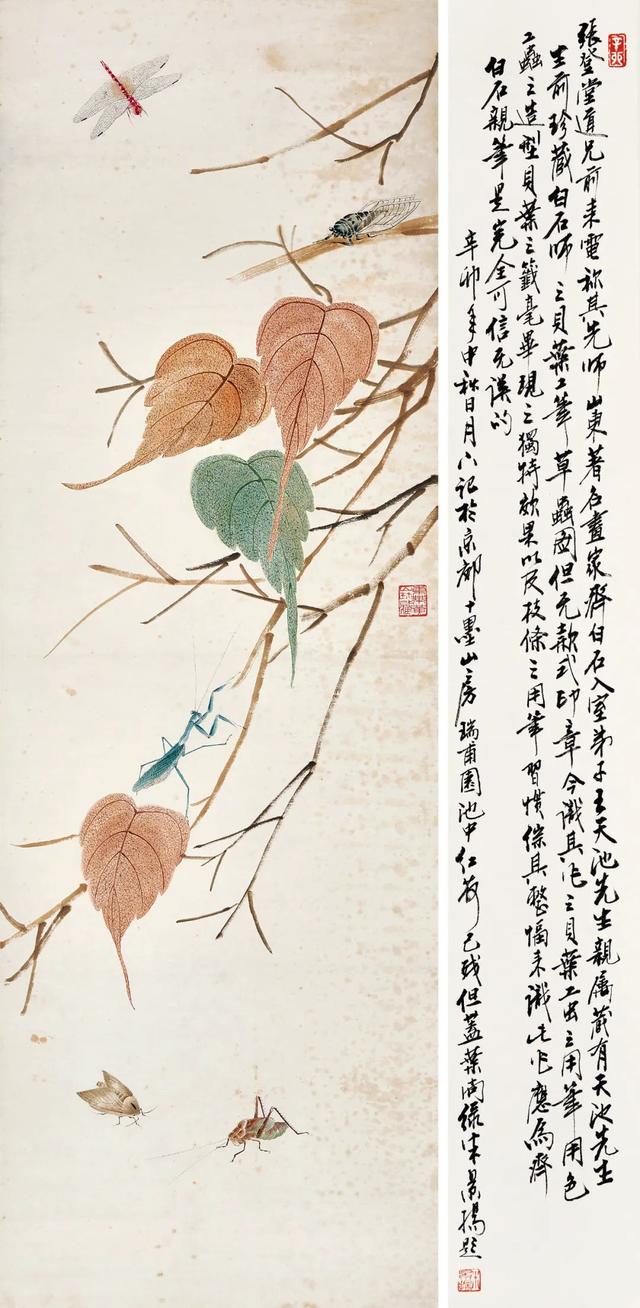 辛卯
張登堂道兄前来電称其先师山東著名畫家齊白石入室弟子王天池先生親屬藏有天池先生
生前珍藏白石师之貝葉工筆草蟲图但无款式印章今識其作之貝葉工虫之用筆用色
工蟲之造型貝葉之籤毫畢現之獨特効果以及枝條之用筆習慣綜其整幅来識此作應爲齊
白石親筆是完全可信无误的
辛卯年中秋日月下记於京都十墨山房瑞甫園池中红荷已残但蓋葉尚绿米景揚题